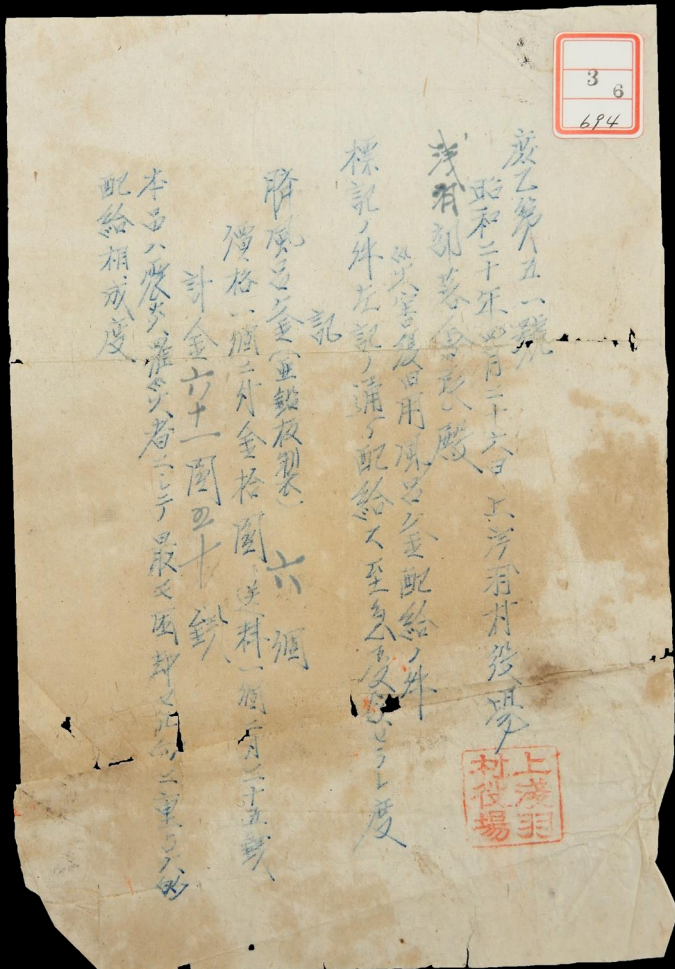 3
6
694
庶乙第八五一號
昭和二十年四月二十六日 上浅羽村役場
浅羽部落會長殿
災害復旧用風呂釜配給ノ件
標記ノ件左記ノ通リ配給ス至急 度
記
風呂釜(亜鉛板製) 六個
價格一個ニ付金拾圓 送料一個 二十五錢
計金六十一圓五十錢
本品ハ震災罹災者ニシテ最モ困却セル
配給相成度
上淺羽
村役場